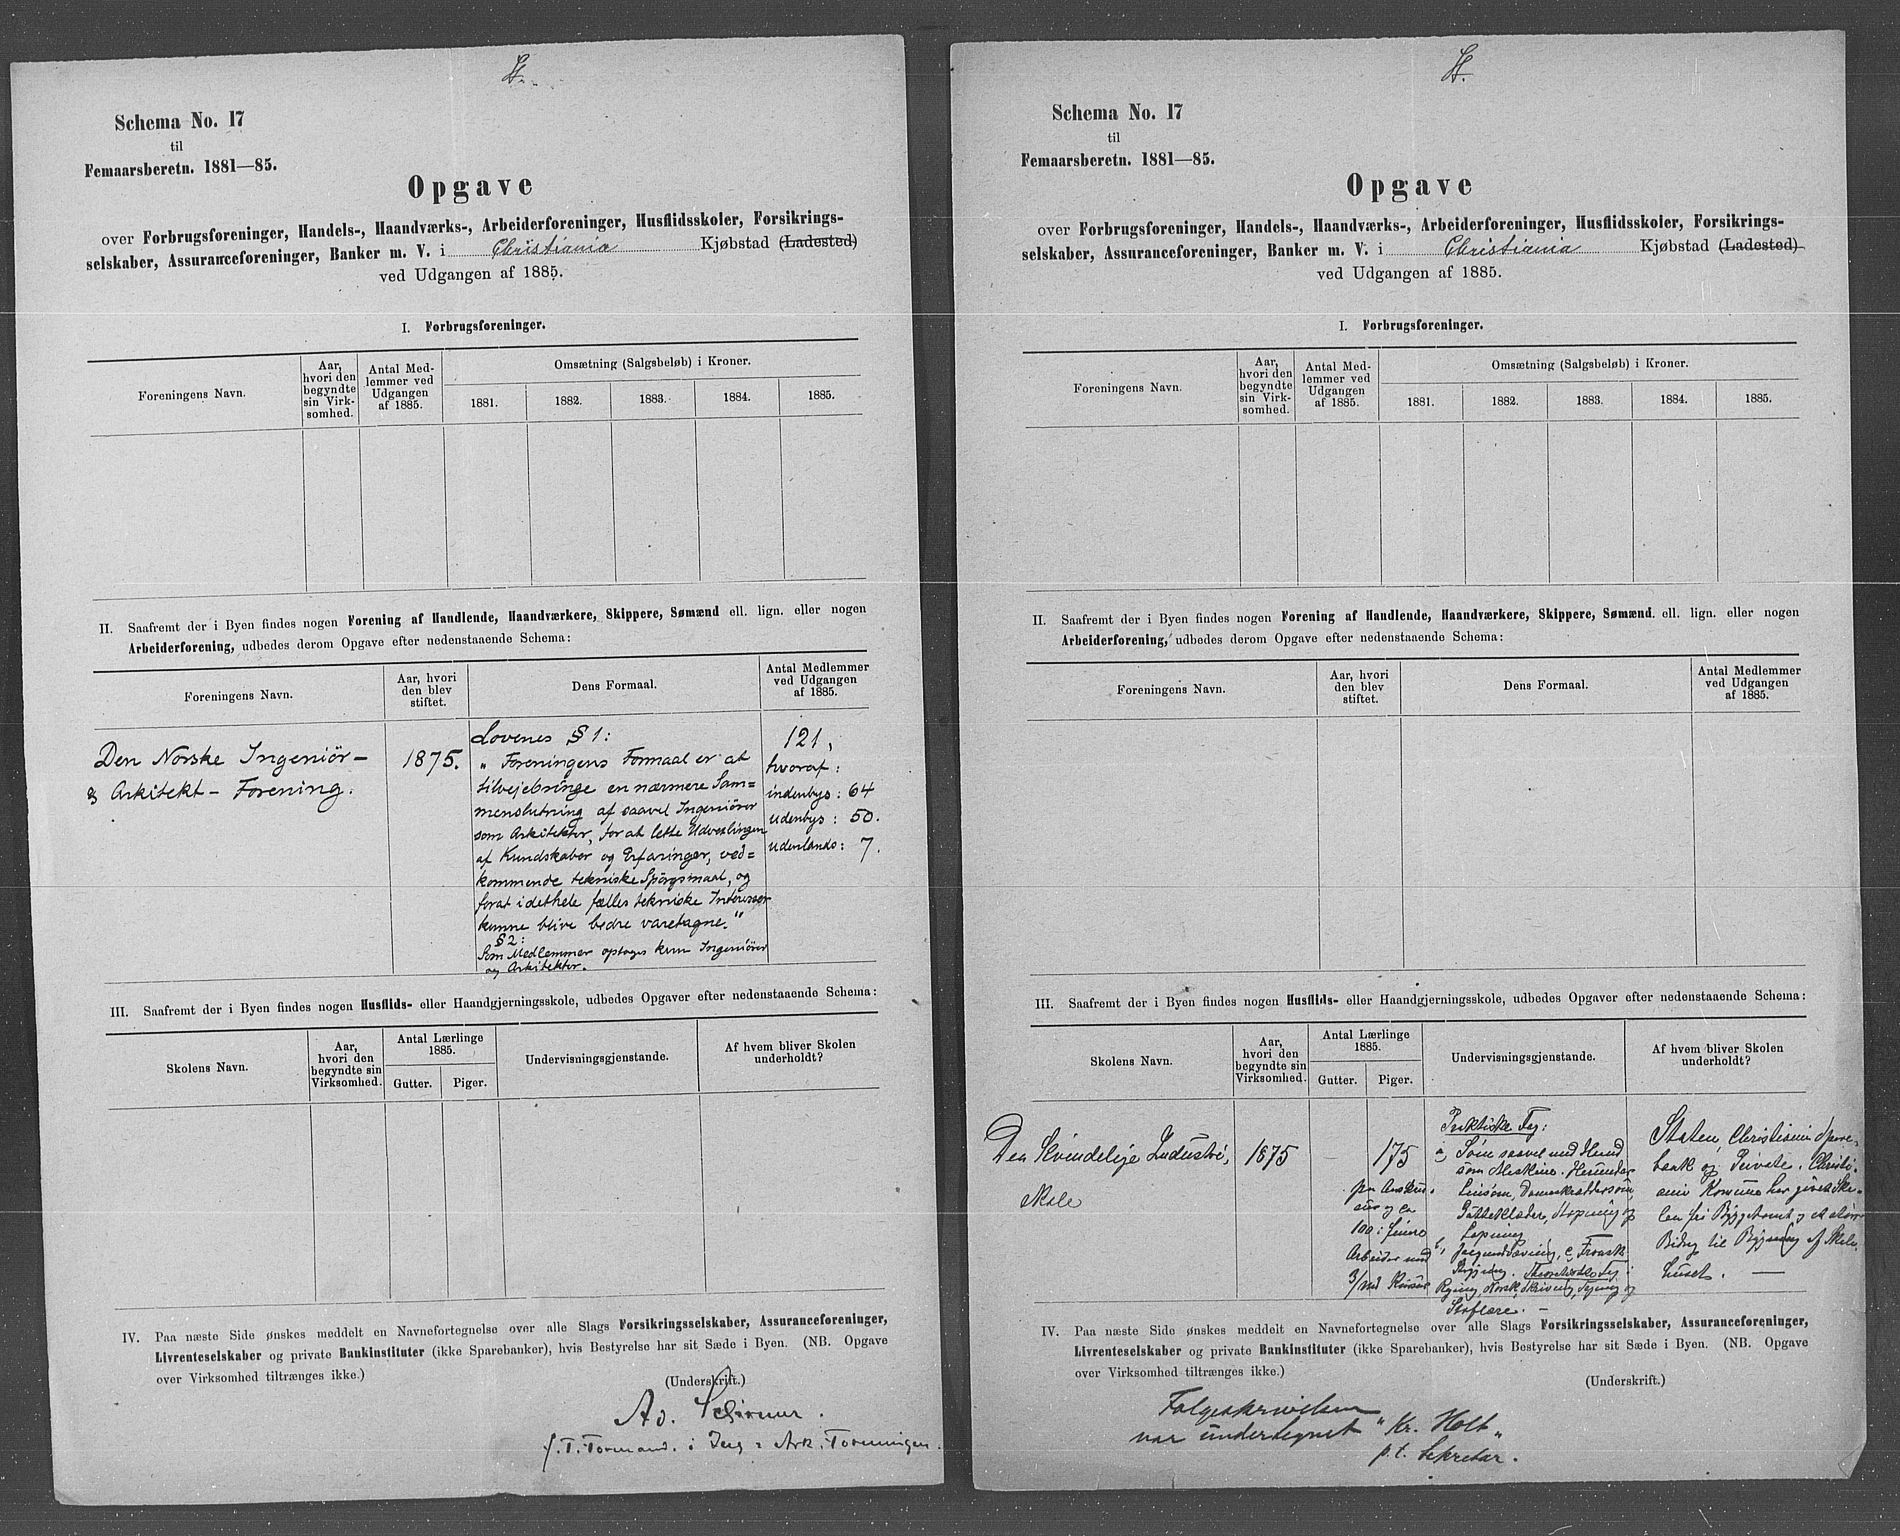 H.
Schema No. 17
til
Femaarsberetn. 1881—85.
Opgave
over Forbrugsforeninger, Handels-, Haandværks-, Arbeiderforeninger, Husflidsskoler, Forsikrings-
selskaber, Assuranceforeninger, Banker m. V. i Christiania Kjøbstad (Ladested)
ved Udgangen af 1885.
I. Forbrugsforeninger.
Foreningens Navn.
Aar, hvori den begyndte sin Virk-somhed.
Antal Med-lemmer ved Udgangen af 1885.
Omsætning (Salgsbeløb) i Kroner.
1881. 1882. 1883. 1884. 1885.
II. Saafremt der i Byen findes nogen Forening af Handlende, Haandværkere, Skippere, Sømænd ell. lign. eller nogen
Arbeiderforening, udbedes derom Opgave efter nedenstaaende Schema:
Foreningens Navn.
Aar, hvori den blev stiftet.
Dens Formaal.
Antal Medlemmer ved Udgangen af 1885.
Den Norske Ingeniør-
& Arkitekt-Forening.
1875.
Lovenes § 1:
"Foreningens Formaal er at
tilvejebringe en nærmere Sam=
menslutning af saavel Ingeniører
som Arkitekter, for at lette Udvexlingen
af Kundskaber og Erfaringer, ved=
kommende tekniske Spörgsmaal, og
forat i det hele fælles tekniske Interesser
kunne blive bedre varetagne."
§ 2:
Som Medlemmer optages kun Ingeniører
og Arkitekter.
121,
hvoraf:
indenbys: 64
udenbys: 50.
udenlands: 7.
III. Saafremt der i Byen findes nogen Husflids- eller Haandgjerningsskole, udbedes Opgaver efter nedenstaaende Schema:
Skolens Navn.
Aar, hvori den begyndte sin Virksomhed.
Antal Lærlinge 1885.
Gutter. Piger.
Undervisningsgjenstande.
Af hvem bliver Skolen underholdt?
IV. Paa næste Side ønskes meddelt en Navnefortegnelse over alle Slags Forsikringsselskaber, Assuranceforeninger,
Livrenteselskaber og private Bankinstituter (ikke Sparebanker), hvis Bestyrelse har sit Sæde i Byen. (NB. Opgave
over Virksomhed tiltrænges ikke.)
(Underskrift.)
Ad. Schirmer.
f.T. Formand i Ing & Ark. Foreningen.
H.
Schema No. 17
til
Femaarsberetn. 1881—85.
Opgave
over Forbrugsforeninger, Handels-, Haandværks-, Arbeiderforeninger, Husflidsskoler, Forsikrings-
selskaber, Assuranceforeninger, Banker m. V. i Christiania Kjøbstad (Ladested)
ved Udgangen af 1885.
I. Forbrugsforeninger.
Foreningens Navn.
Aar, hvori den begyndte sin Virk-somhed.
Antal Med-lemmer ved Udgangen af 1885.
Omsætning (Salgsbeløb) i Kroner.
1881. 1882. 1883. 1884. 1885.
II. Saafremt der i Byen findes nogen Forening af Handlende, Haandværkere, Skippere, Sømænd ell. lign. eller nogen
Arbeiderforening, udbedes derom Opgave efter nedenstaaende Schema:
Foreningens Navn.
Aar, hvori den blev stiftet.
Dens Formaal.
Antal Medlemmer ved Udgangen af 1885.
III. Saafremt der i Byen findes nogen Husflids- eller Haandgjerningsskole, udbedes Opgaver efter nedenstaaende Schema:
Skolens Navn.
Aar, hvori den begyndte sin Virksomhed.
Antal Lærlinge 1885.
Gutter. Piger.
Undervisningsgjenstande.
Af hvem bliver Skolen underholdt?
Den Kvindelige Industri,
skole
1875
—
175
100
Arbeider med
Praktiske Fag:
a, Søm saavel med Haand
som Maskine. Herunder
Linsøm,
Stopning og
Lapning
b,
Theoretiske Fag:
Norsk, Skrivning, Tegning og
Stoflære. —
Staten, Christiania Spare-
bank og Private. Christi-
ania Komune har givet Sko-
len fri Byggetomt og et større
Bidrag til Bygning af Skole-
huset. —
IV. Paa næste Side ønskes meddelt en Navnefortegnelse over alle Slags Forsikringsselskaber, Assuranceforeninger,
Livrenteselskaber og private Bankinstituter (ikke Sparebanker), hvis Bestyrelse har sit Sæde i Byen. (NB. Opgave
over Virksomhed tiltrænges ikke.)
(Underskrift.)
Følgeskrivelsen
var undertegnet "Kr. Holt"
p.t. Sekretær.